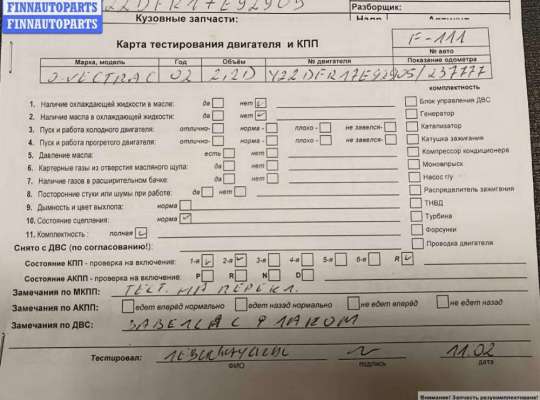 FINNAUTOPARTS
FINNAUTOPARTS
Разборщик:
Кузовные запчасти:
Карта тестирования двигателя и КПП
F-111
№ авто
Марка, модель Год Объём № двигателя Показание одометра
O-VECTRA C 02 2,2D Y22DTR17E9290S/237777
комплектность
1. Наличие охлаждающей жидкости в масле: да нет
2. Наличие масла в охлаждающей жидкости: да нет
3. Пуск и работа холодного двигателя: отлично- норма - плохо - не завелся-
4. Пуск и работа прогретого двигателя: отлично- норма - плохо - не завелся-
5. Давление масла: есть нет
6. Картерные газы из отверстия масляного щупа: да нет
7. Наличие газов в расширительном бачке: да нет
8. Посторонние стуки или шумы при работе: да нет
9. Дымность и цвет выхлопа: норма
10. Состояние сцепления: норма
11. Комплектность : полная
Блок управления ДВС
Генератор
Катализатор
Катушка зажигания
Компрессор кондиционера
Моновпрыск
Насос г/у
Распределитель зажигания
ТНВД
Турбина
Форсунки
Проводка двигателя
Снято с ДВС (по согласованию!):
Состояние КПП - проверка на включение: 1-я 2-я 3-я 4-я 5-я 6-я R
Состояние АКПП - проверка на включение: P R N D
Замечания по МКПП: ТЕСТ. НА ПЕРЕКЛ.
Замечания по АКПП: едет вперёд нормально едет назад нормально не едет вперёд не едет назад
Замечания по ДВС: ЗАВЕЛСЯ С
Тестировал: 11.02
ФИО подпись дата
Внимание! Запчасть разукомплектована!